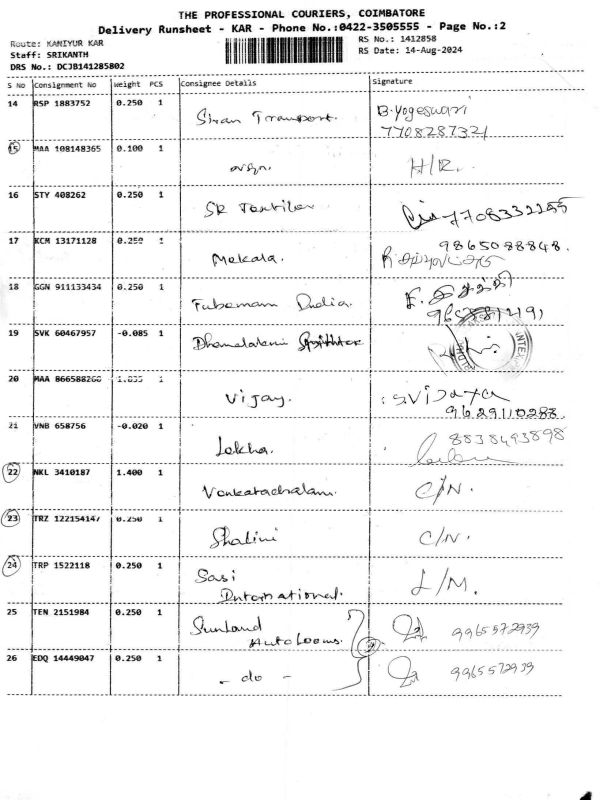 THE PROFESSIONAL COURIERS, COIMBATORE
Delivery Runsheet - KAR - Phone No.:0422-3505555 - Page No.:2
Route: KANIYUR KAR
RS No.: 1412858
Staff: SRIKANTH
RS Date: 14-Aug-2024
DRS No.: DCJB141285802
S No Consignment No Weight PCS Consignee Details Signature
14 RSP 1883752 0.250 1 Transport. B.Yogeswari
7708287321
15 MAA 108148365 0.100 1 H/R.
16 STY 408262 0.250 1 SR 7708332255
17 KCM 13171128 0.250 1 Mekala. 9865088848.
18 GGN 911133434 0.250 1 India.
19 SVK 60467957 -0.085 1
20 MAA 866588260 1.835 1 Vijay. : S.Vijaya
9629110288
21 VNB 658756 -0.020 1 Lekha. 8838493898
22 NKL 3410187 1.400 1 Venkatachalam. C/N.
23 TRZ 122154147 0.250 1 Shalini C/N.
24 TRP 1522118 0.250 1 Sasi International. L/M.
25 TEN 2151984 0.250 1 Sunland Autolooms. 9965572939
26 EDQ 14449047 0.250 1 - do - 9965572939